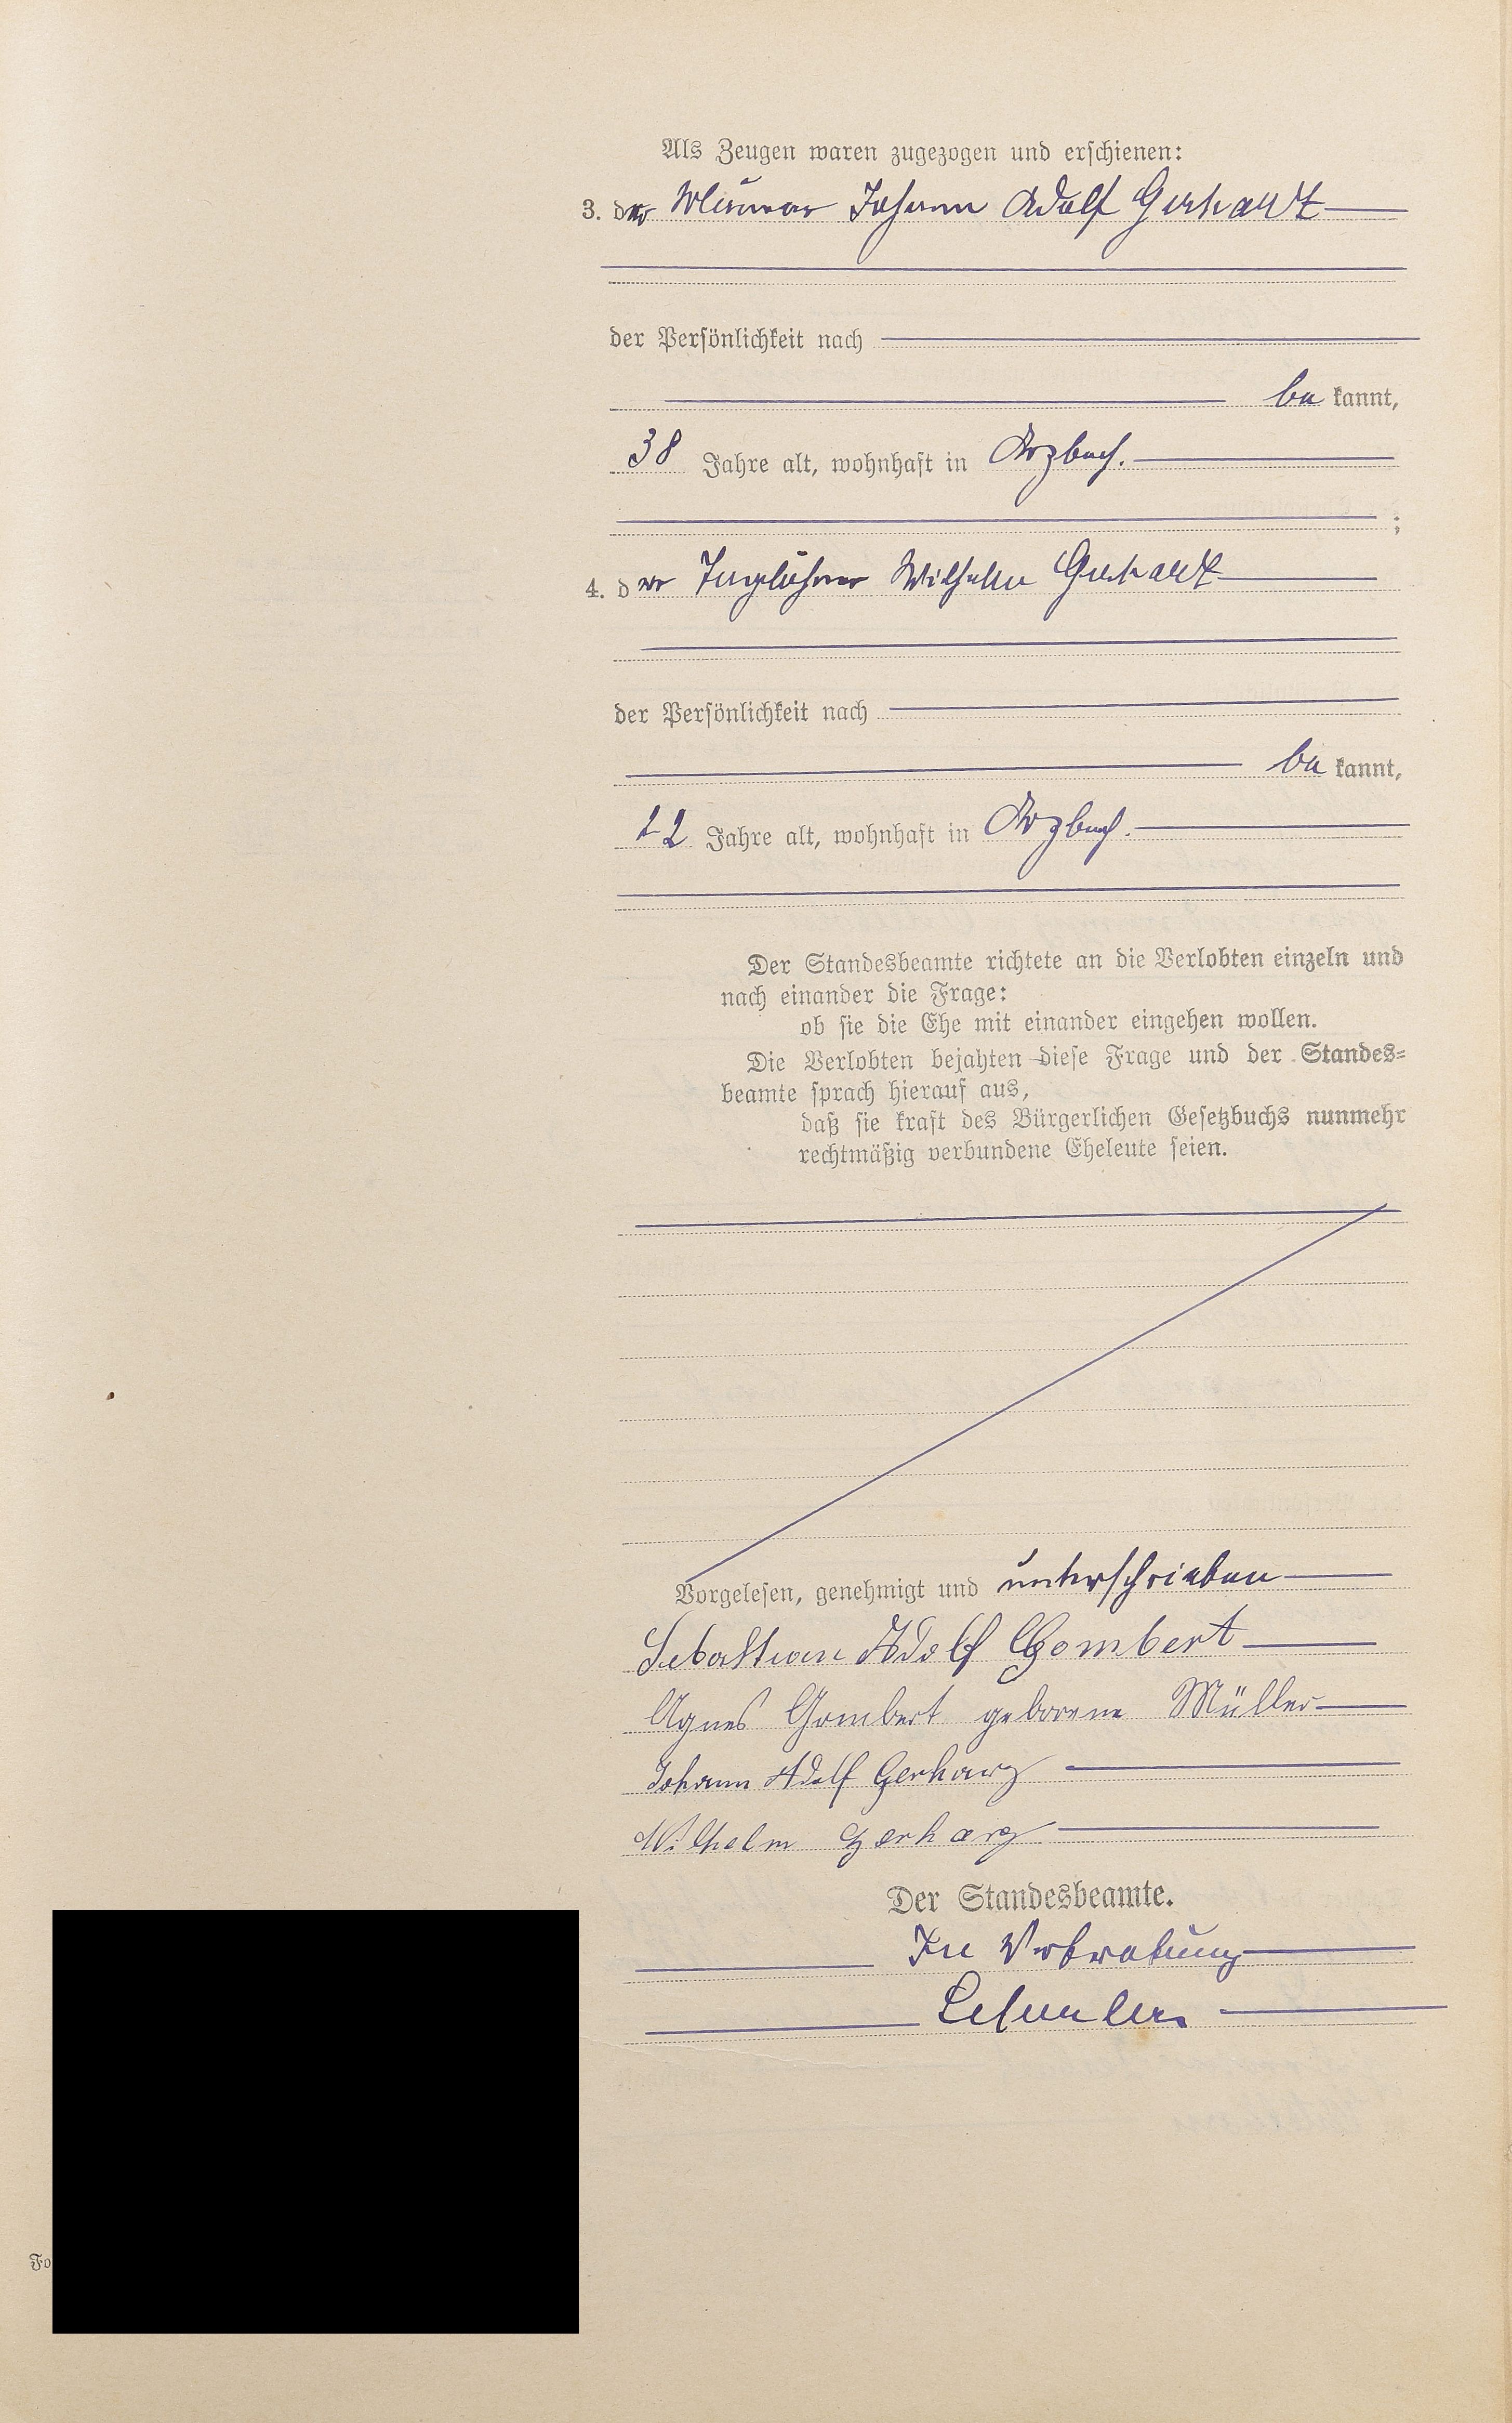 Als Zeugen waren zugezogen und erschienen:
3. der Maurer Johann Adolf Gerhartz
der Persönlichkeit nach
be kannt,
38 Jahre alt, wohnhaft in Arzbach.
;
4. der Tagelöhner Wilhelm Gerhartz
der Persönlichkeit nach
be kannt,
22 Jahre alt, wohnhaft in Arzbach.
Der Standesbeamte richtete an die Verlobten einzeln und
nach einander die Frage:
ob sie die Ehe mit einander eingehen wollen.
Die Verlobten bejahten diese Frage und der Standes=
beamte sprach hierauf aus,
daß sie kraft des Bürgerlichen Gesetzbuchs nunmehr
rechtmäßig verbundene Eheleute seien.
Vorgelesen, genehmigt und unterschrieben
Sebastian Adolf Gombert
Agnes Gombert geborene Müller
Johann Adolf Gerharz
Wilhelm Gerharz
Der Standesbeamte.
In Vertretung
Fo